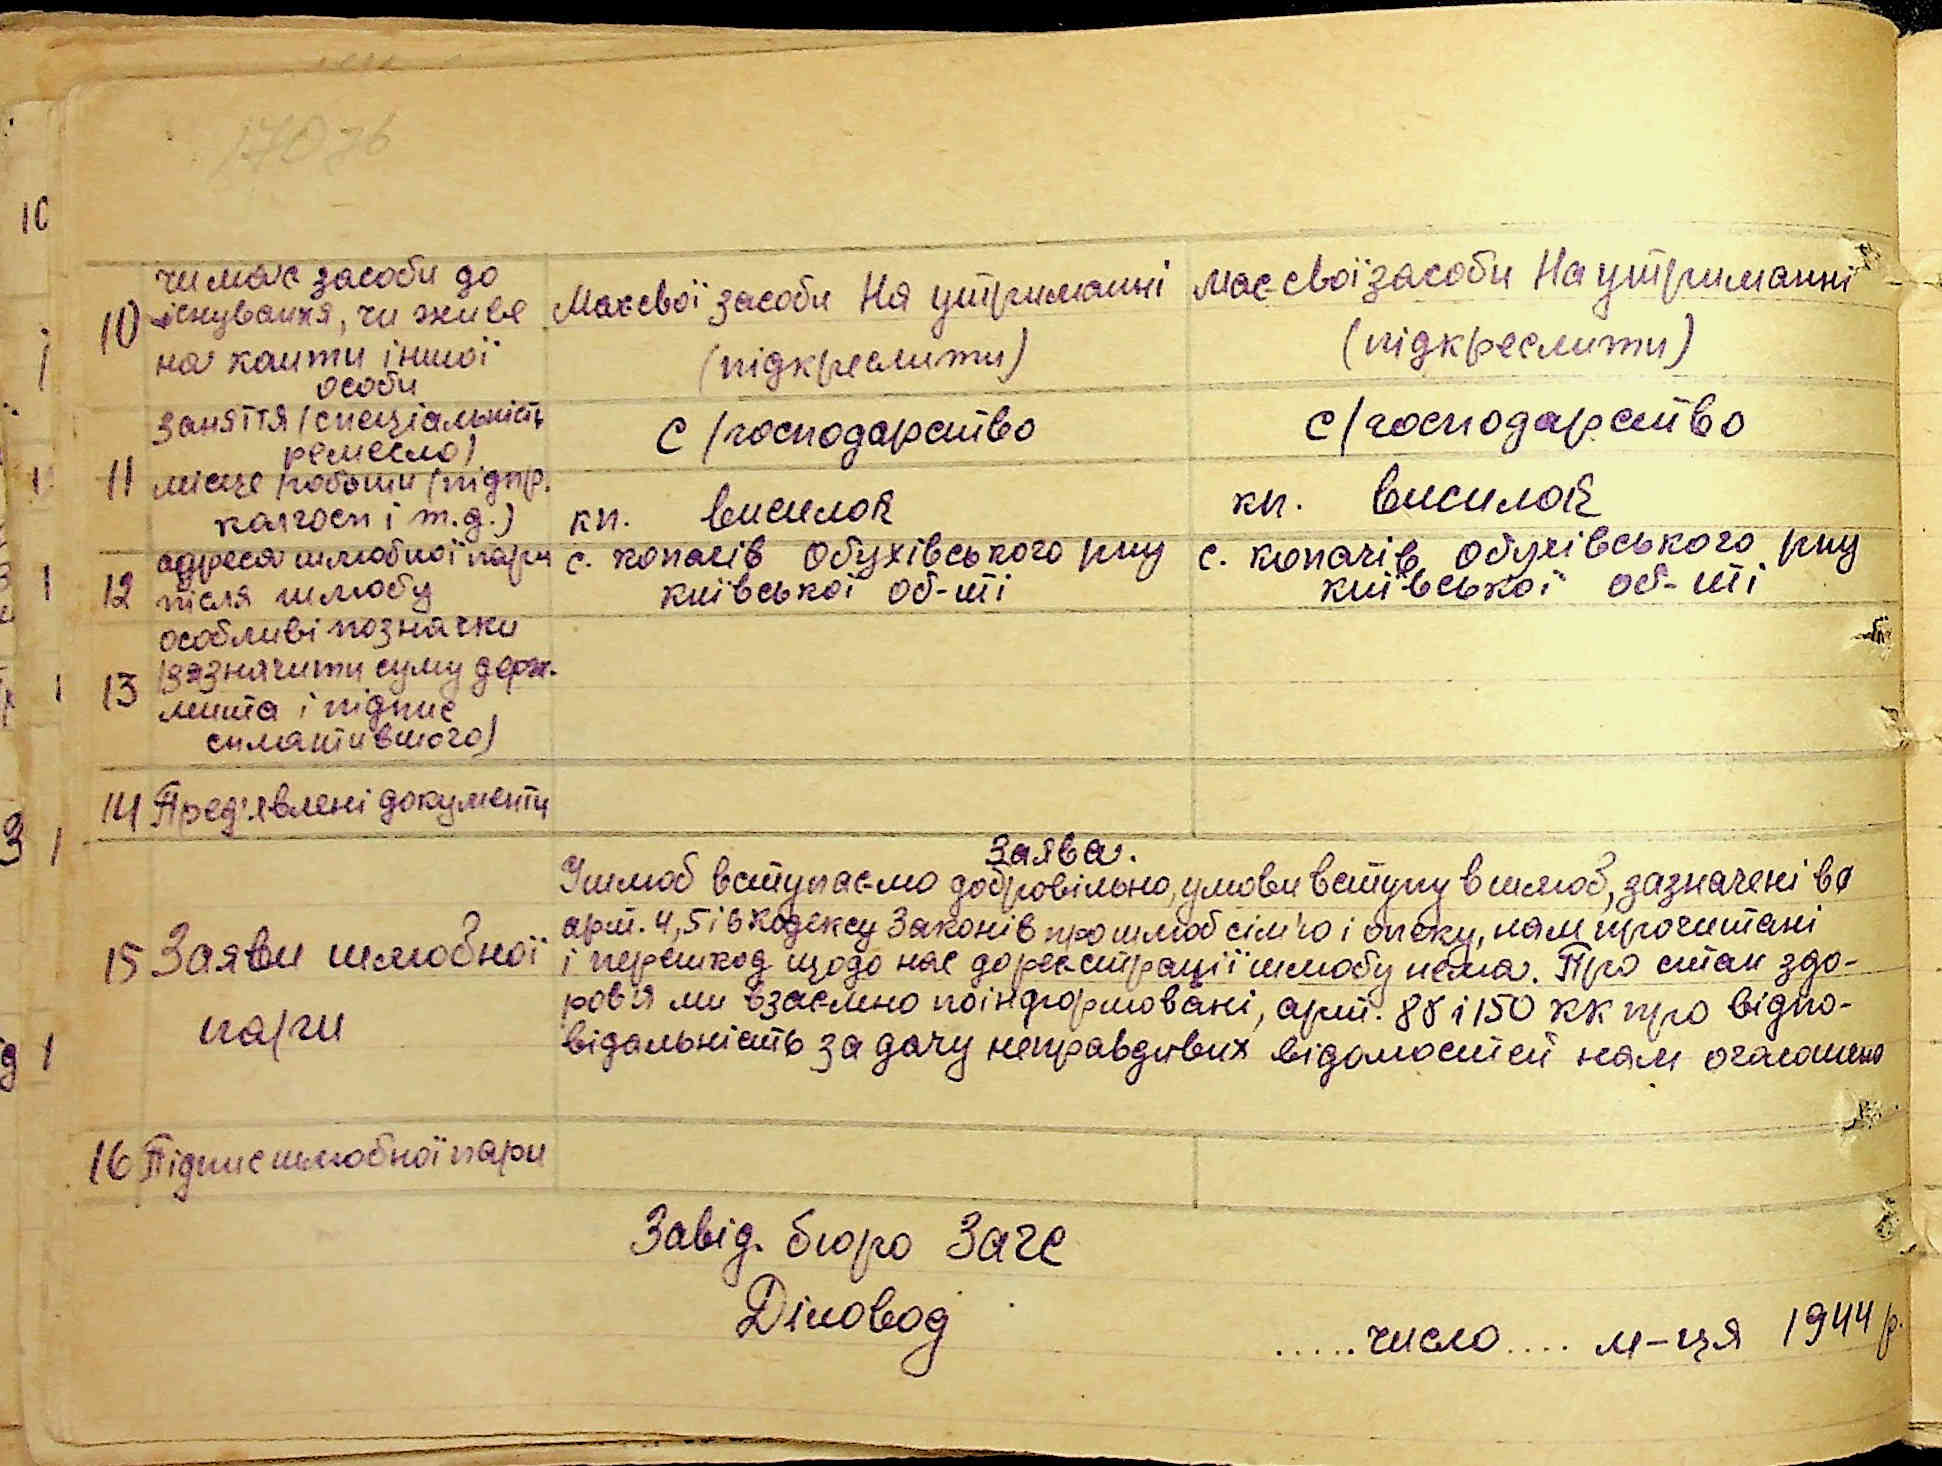 170 зв
10 чи має засоби до
існування, чи живе
на кошти іншої
особи
Має свої засоби На утриманні
(підкреслити)
має свої засоби На утриманні
(підкреслити)
11 Заняття (спеціальність
ремесло)
С/господарство
с/господарство
місце роботи (підпр.
колгосп і т.д.)
кп.
кп.
12 адреса шлюбної пари
після шлюбу
с. копачів Обухівського рну
київської об-ті
с. копачів Обухівського рну
київської об-ті
13 особливі позначки
(зазначити суму держ.
мита і підпис
сплатившого)
14 Пред'явлені документи
15 Заяви шлюбної
пари
Заява.
У шлюб вступаємо добровільно, умови вступу в шлюб, зазначені в
арт. 4,5 і 6 кодексу Законів про шлюб сім'ю і опеку, нам прочитані
і перешкод щодо нас до реєстрації шлюбу нема. Про стан здо-
ров'я ми взаємно поінформовані, арт. 88 і 150 КК про відпо-
відальність за дачу неправдивих відомостей нам оголошено
16 Підпис шлюбної пари
Завід. бюро Загс
Діловод
.....число.... м-ця 1944 р.